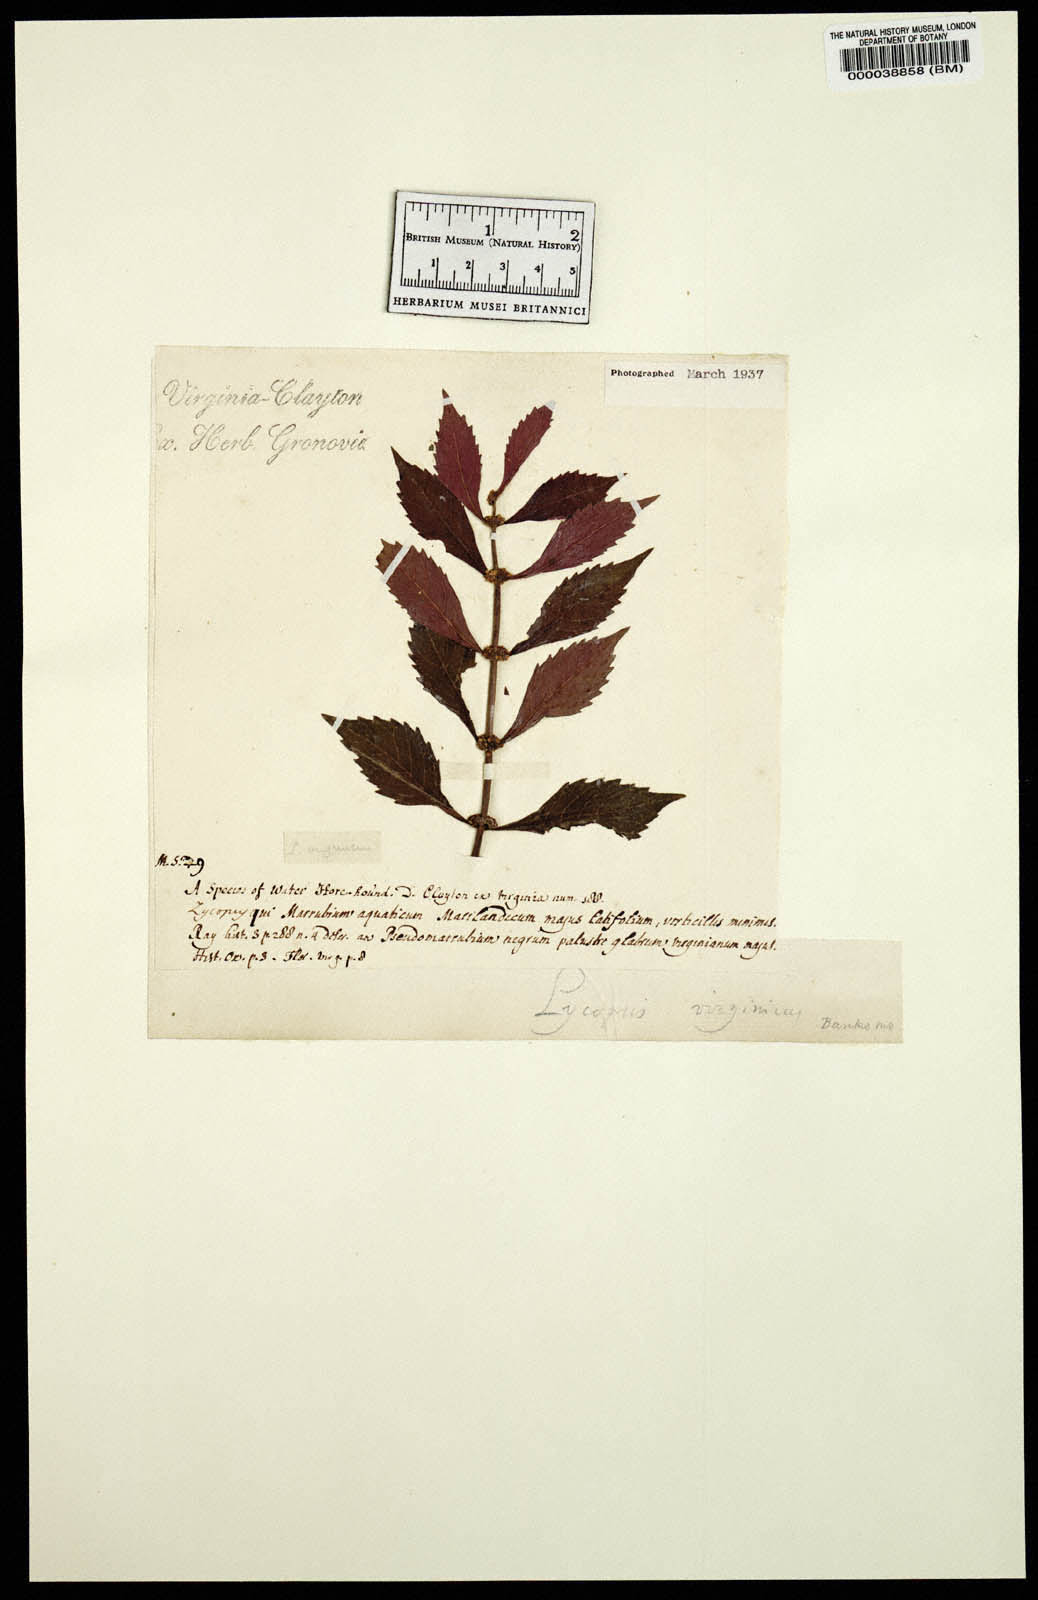 THE NATURAL HISTORY MUSEUM, LONDON
DEPARTMENT OF BOTANY
000038858 (BM)
1 2
BRITISH MUSEUM (NATURAL HISTORY)
1 2 3 4 5
HERBARIUM MUSEI BRITANNICI
Photographed March 1937
Virginia-Clayton
Herb. Gronovii
A Species of Water Hore-hound. D. Clayton ex Virginia num. 188.
Lycopus qui Marrubium aquaticum Marilandicum majus latifolium, verticillis minimis.
Ray hist. 3 p 288 n. 4 Pseudomarrubium nigrum palustre glabrum virginianum majus.
Hist. Ox. p. 3 - Flor. Virg. p. 8
Lycopus virginicus
Banks